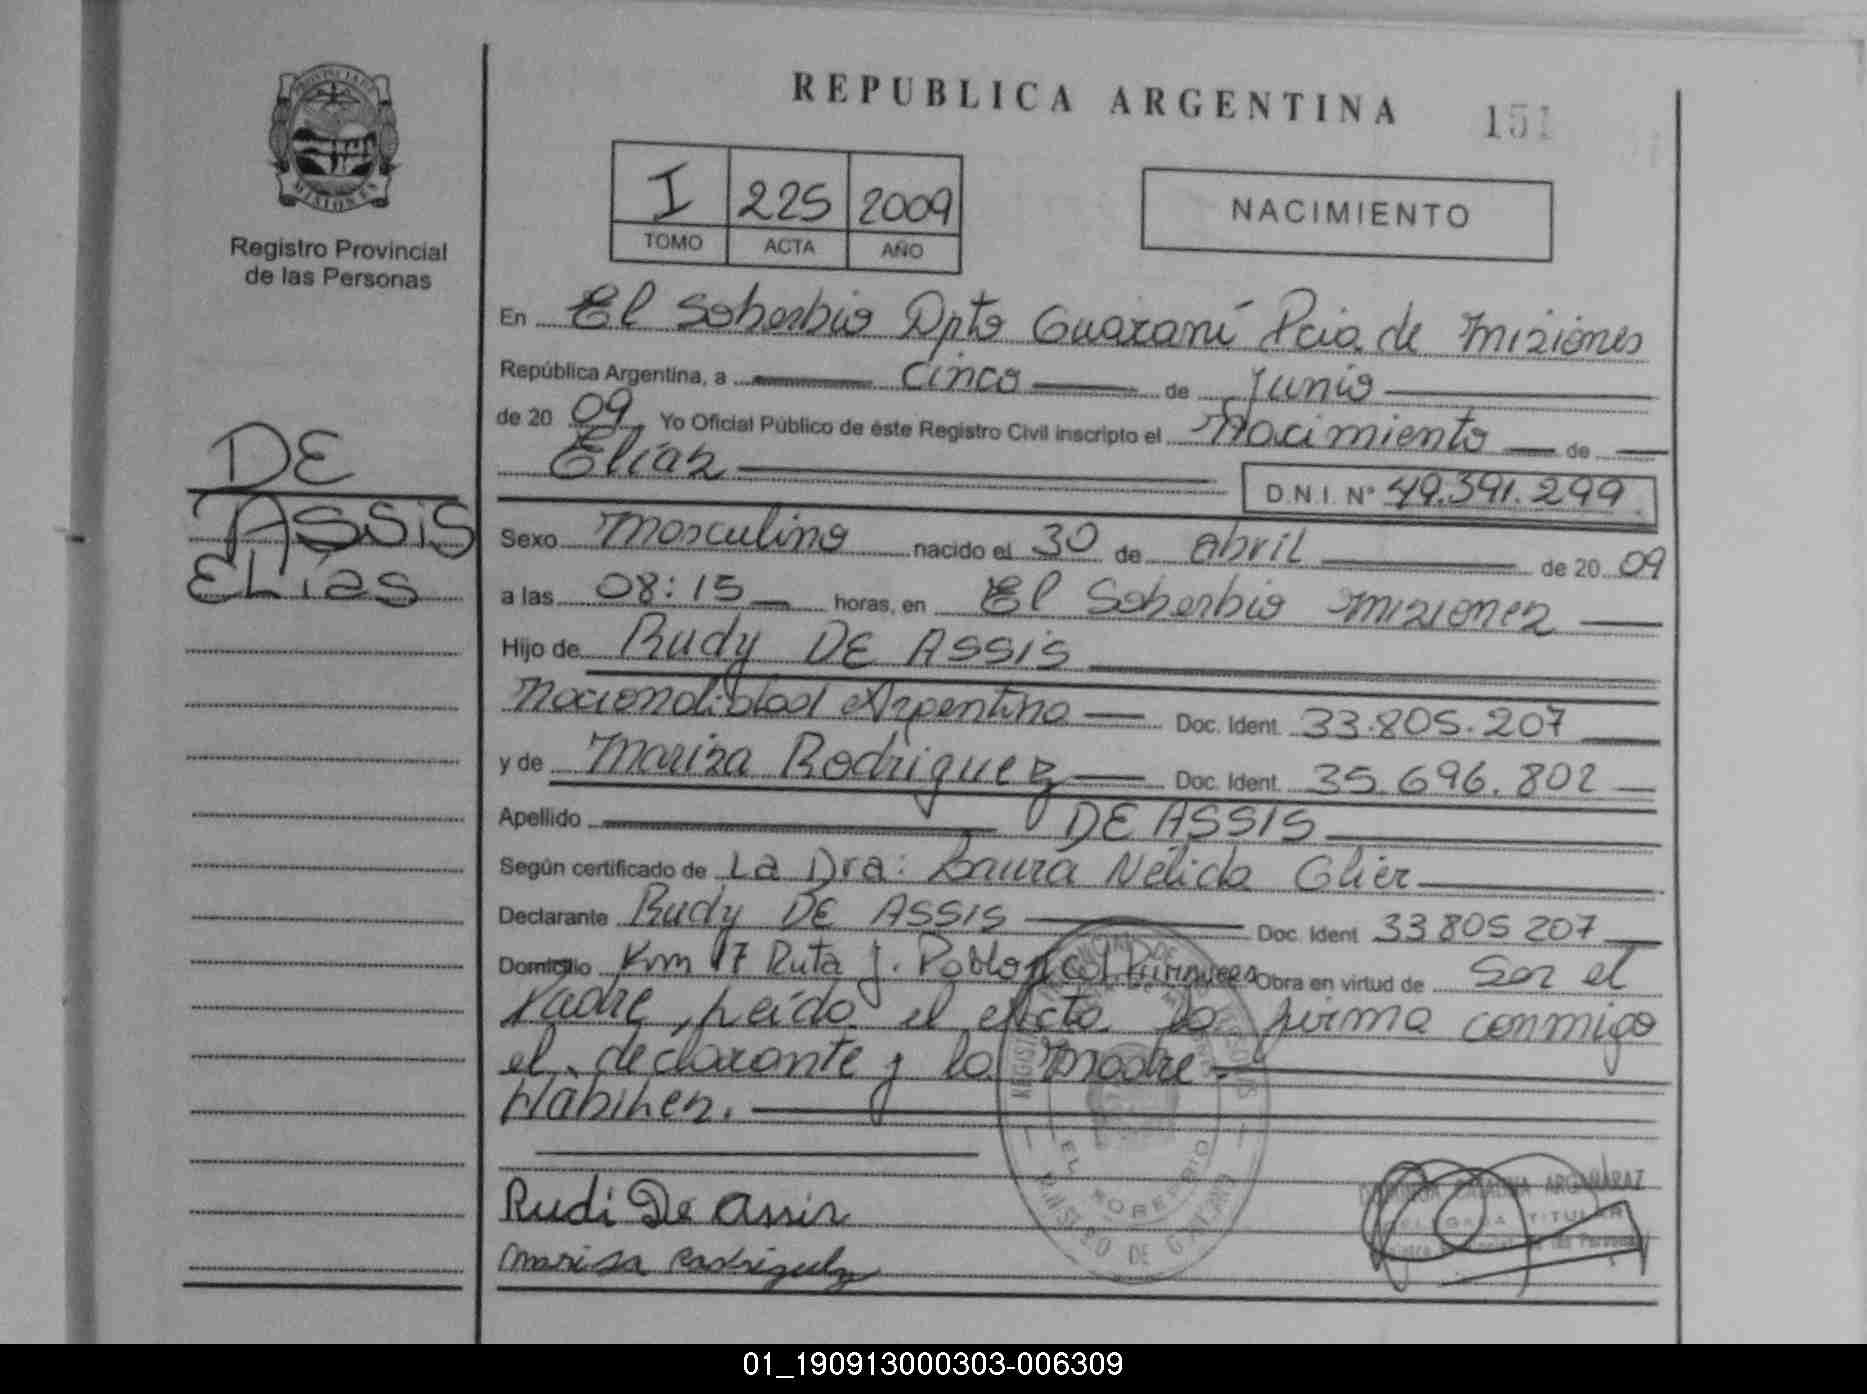 REPUBLICA ARGENTINA
151
PROVINCIA DE
MISIONES
Registro Provincial
de las Personas
I 225 2009
TOMO ACTA AÑO
NACIMIENTO
DE
ASSIS
ELías
En El Soberbio Dpto Guaraní Pcia. de Misiones
República Argentina, a cinco de Junio
de 20 09 Yo Oficial Público de éste Registro Civil inscripto el Nacimiento de
Elías
D.N.I. Nº 49.391.299
Sexo Masculino nacido el 30 de abril de 20 09
a las 08:15 horas, en El Soberbio Misiones
Hijo de Rudy DE ASSIS
Nacionalidad Argentina Doc. Ident. 33.805.207
y de Marisa Rodriguez Doc. Ident. 35.696.802
Apellido DE ASSIS
Según certificado de La Dra: Laura Nélida Glier
Declarante Rudy DE ASSIS Doc. Ident 33 805 207
Domicilio Km 17 Ruta J. Pablo Obra en virtud de Ser el
Padre, Leída el Acta la firma conmigo
el declarante y la Madre
Wabihez.
Rudi De assis
marisa Rodriguez
EL SOBERBIO
MINISTERIO DE GOBIERNO
ARGAÑARAZ
DELEGADA TITULAR
01_190913000303-006309